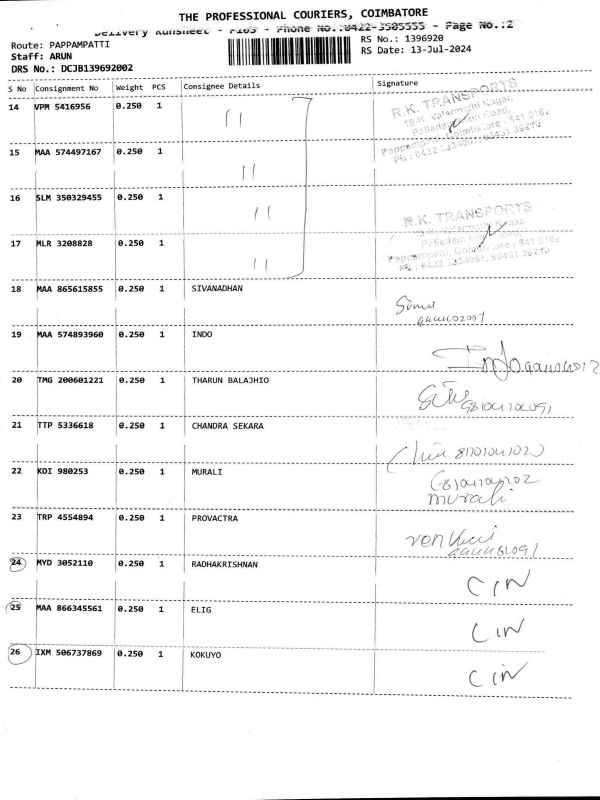 THE PROFESSIONAL COURIERS, COIMBATORE
Delivery Runsheet - P105 - Phone No.:0422-3505555 - Page No.:2
Route: PAPPAMPATTI
RS No.: 1396920
Staff: ARUN
RS Date: 13-Jul-2024
DRS No.: DCJB139692002
S No Consignment No Weight PCS Consignee Details Signature
14 VPM 5416956 0.250 1 11
R.K. TRANSPORTS
15 MAA 574497167 0.250 1 11
16 SLM 350329455 0.250 1 11
R.K. TRANSPORTS
17 MLR 3208828 0.250 1 11
18 MAA 865615855 0.250 1 SIVANADHAN
19 MAA 574893960 0.250 1 INDO
Indo
20 TMG 200601221 0.250 1 THARUN BALAJHIO
21 TTP 5336618 0.250 1 CHANDRA SEKARA
22 KDI 980253 0.250 1 MURALI
murali
23 TRP 4554894 0.250 1 PROVACTRA
24 MYD 3052110 0.250 1 RADHAKRISHNAN
CIN
25 MAA 866345561 0.250 1 ELIG
CIN
26 IXM 506737869 0.250 1 KOKUYO
CIN